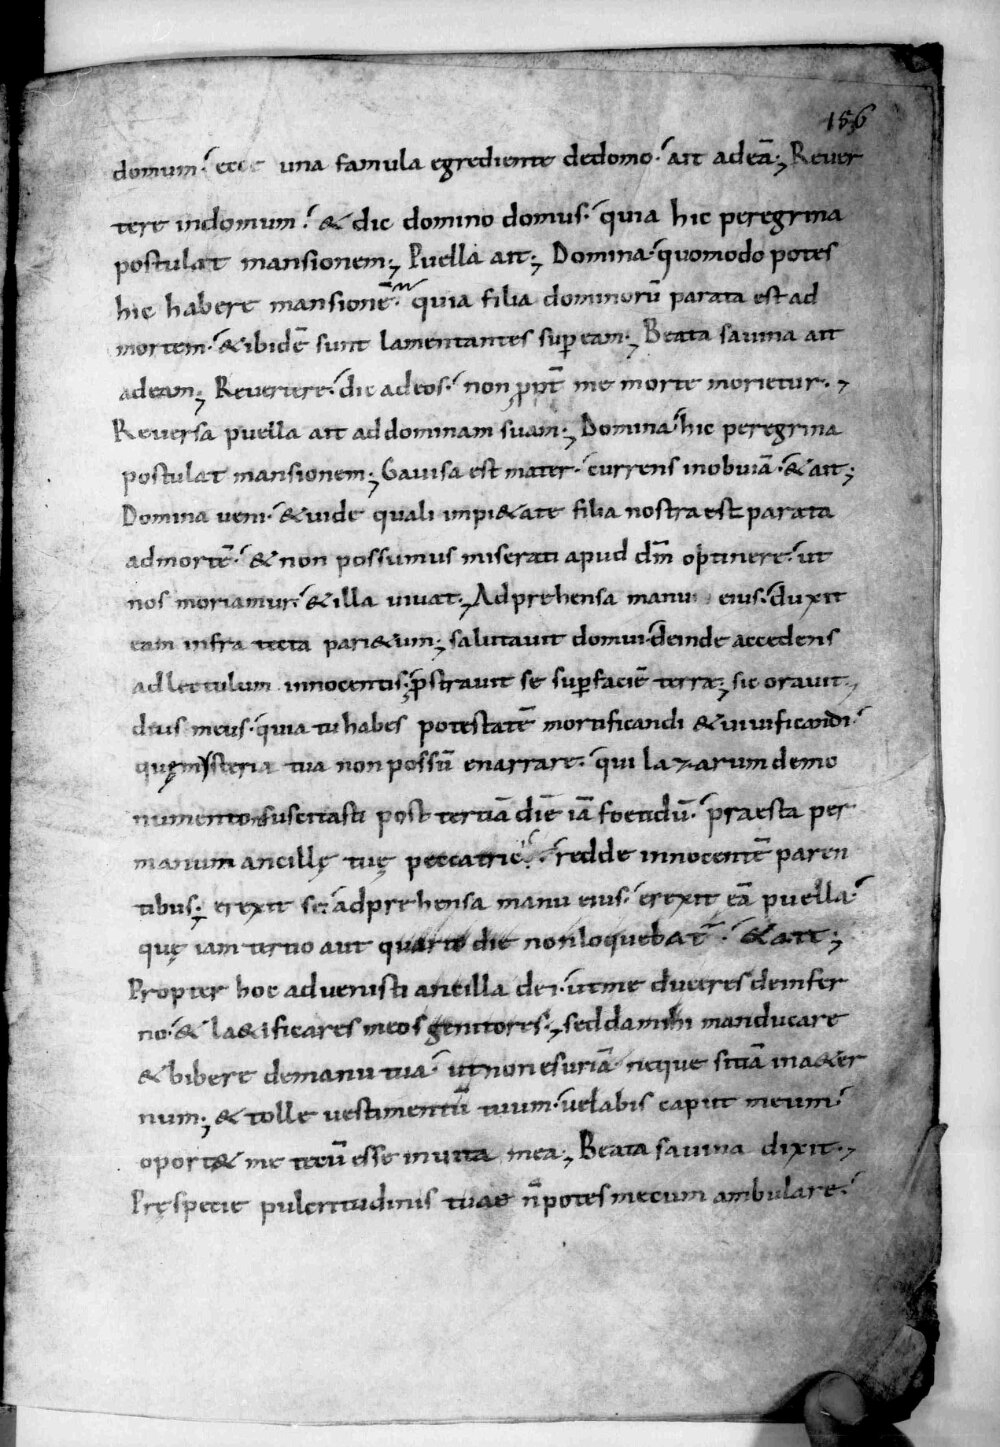 156
domum·́ ecce una famula egrediente dedomo·́ ait adeā·; Rever
tere indomum·́ & dic domino domus·́ quia hic peregrina
postulat mansionem·; Puella ait·; Domina·́ quomodo potes
hic habere mansionē·́ quia filia dominorū parata est ad
mortem·́ & ibidē sunt lamentantes suꝑ eam·; Beata savina ait
adeam·; Revertere·́ dic adeos·́ non ꝓpt̄ me morte morietur·;
Reversa puella ait addominam suam·; Domina·́ hic peregrina
postulat mansionem·; Gavisa est mater·́ currens inobviā·́ & ait·;
Domina veni·́ & vide quali impi&ate filia nostra est parata
admortē·́ & non possumus miserati apud dm̄ optinere·́ ut
nos moriamur·́ & illa vivat·; Adprehensa manu eius·́ duxit
eam infra tecta pari&um·; salutavit domui·́ deinde accedens
adlectulum innocentis·́ p̄stravit se suꝑfaciē terrę·; sic oravit·;
dš meus·́ quia tu habes potestatē mortificandi & vivificandi·́
quę mysteria tua non possū enarrare·́ qui lazarum demo
numento suscitasti post tertiā diē iā foetidū·́ praesta per
manum ancillę tuę peccatric&#x119;·́ redde innocentē paren
tibus·; erexit se·́ adprehensa manu eius·́ erexit eā puella·́
quę iam tertio aut quarto die non loquebat̄·́ & ait·;
Propter hoc advenisti ancilla dei·́ ut me duceres deinfer
no·́ & la&ificares meos genitores·; sed da mihi manducare
& bibere demanu tua·́ ut non esuriā·́ neque sitiā ina&er
num·; & tolle vestimentū tuum·́ velabis caput meum·́
oport& me tecū esse invita mea·; Beata savina dixit·;
Pręspecie pulcritudinis tuae n̄ potes mecum ambulare·́